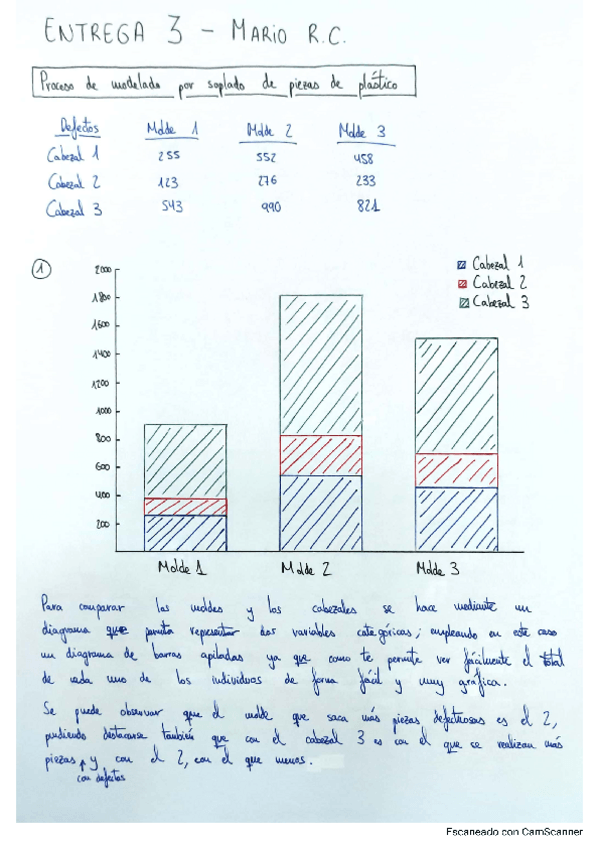 ENTREGA 3 - MARIO R.C.
Proceso de modelado por soplado de piezas de plástico
Defectos Molde 1 Molde 2 Molde 3
Cabezal 1 255 552 458
Cabezal 2 123 276 233
Cabezal 3 543 990 821
1
Cabezal 1
Cabezal 2
Cabezal 3
2000
1800
1600
1400
1200
1000
800
600
400
200
Molde 1 Molde 2 Molde 3
Para comparar los moldes y los cabezales se hace mediante un
diagrama que permita representar dos variables categóricas; empleando en este caso
un diagrama de barras apiladas ya que como te permite ver fácilmente el total
de cada uno de los individuos de forma fácil y muy gráfica.
Se puede observar que el molde que saca más piezas defectuosas es el 2,
pudiendo destacarse también que con el cabezal 3 es con el que se realizan más
piezas y con el 2, con el que menos.
con defectos
Escaneado con CamScanner